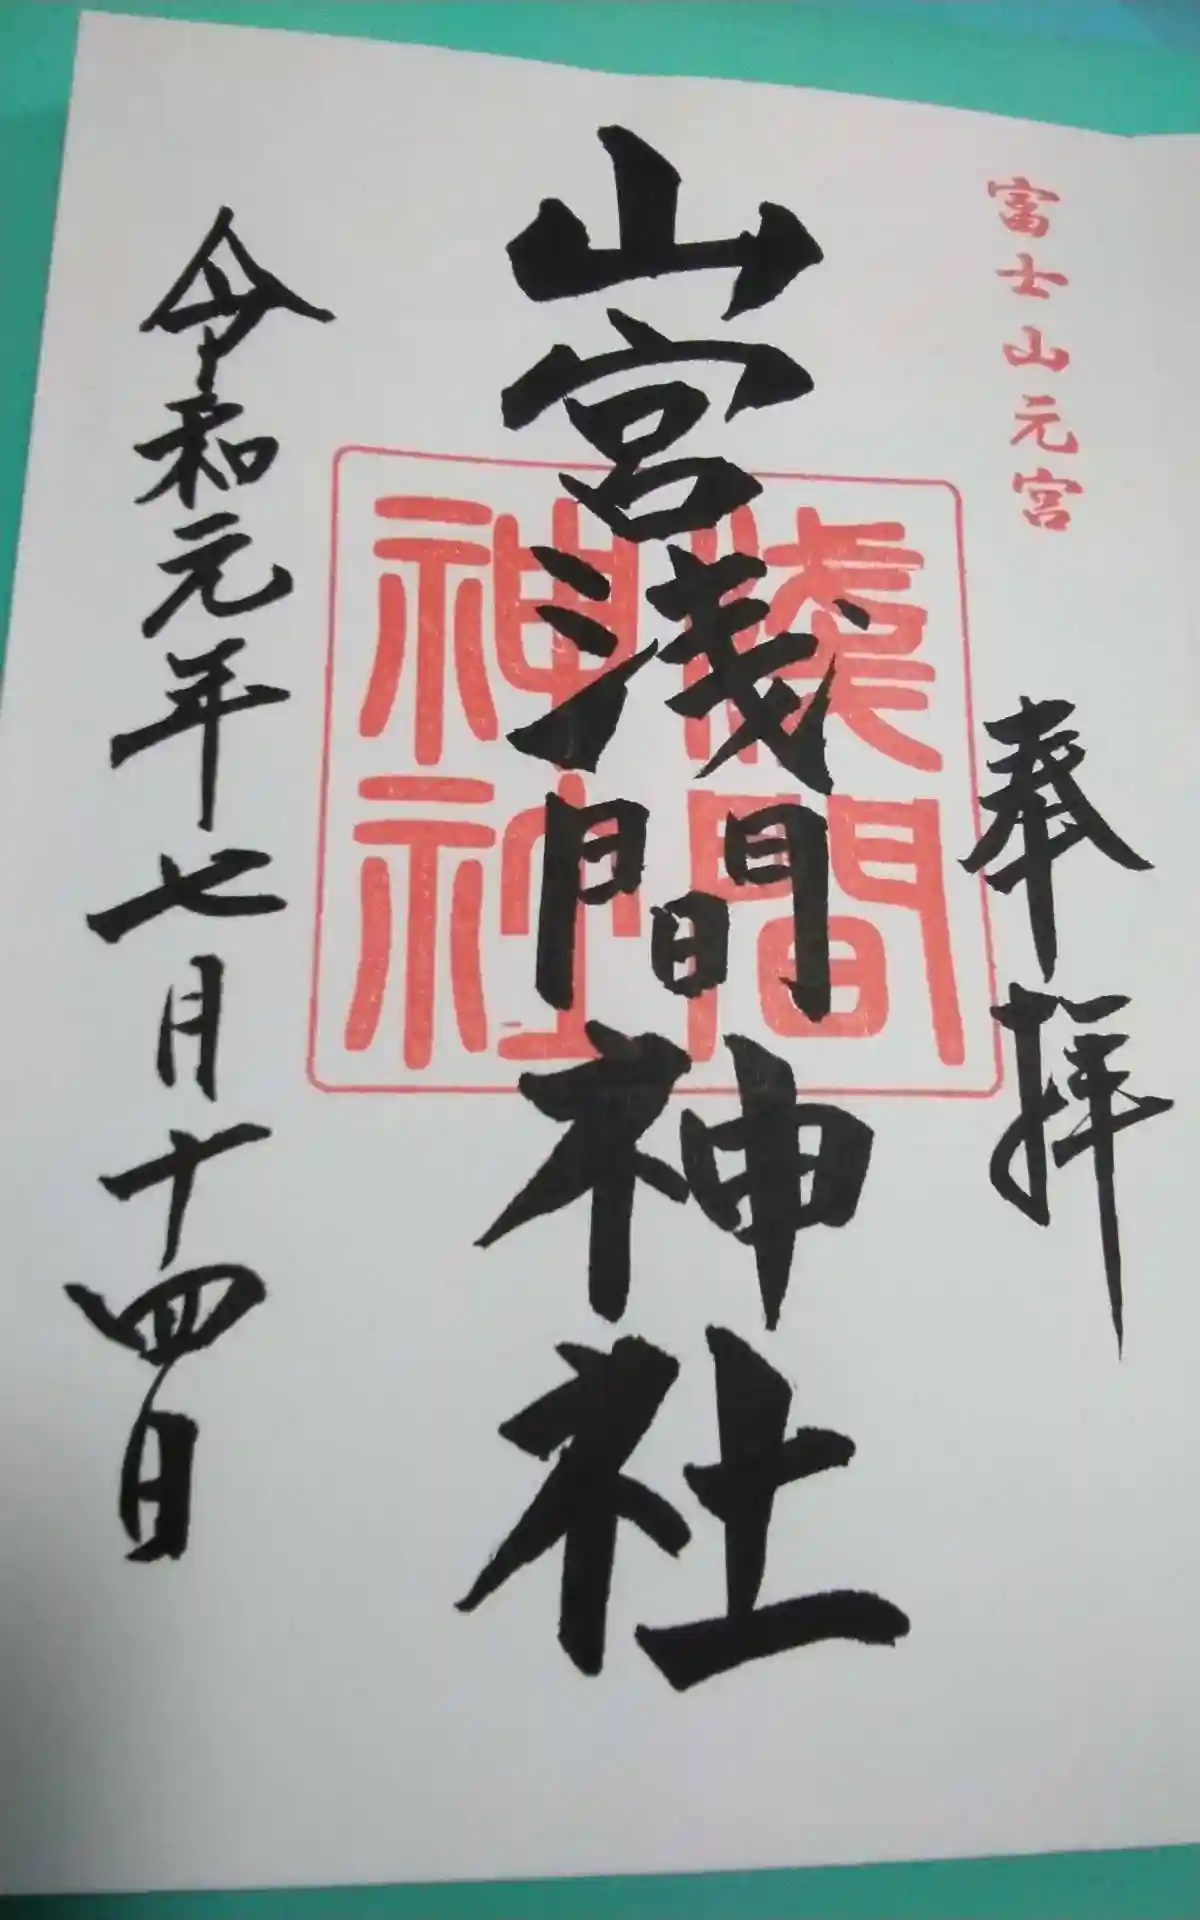 富士山元宮
奉拝
山宮浅間神社
淺間
神社
令和元年七月十四日